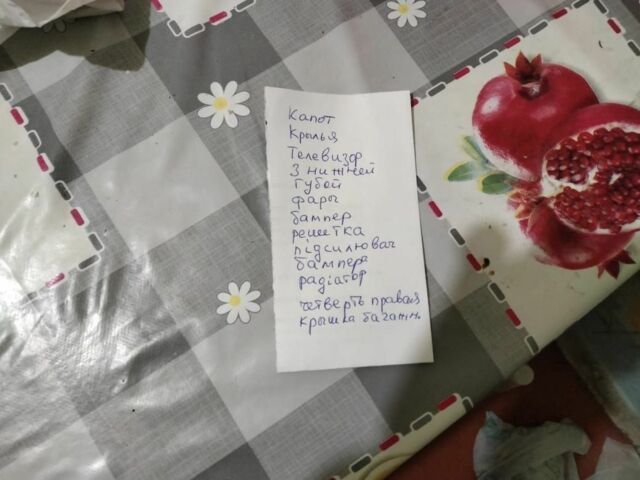 Капот
Крылья
Телевизор
З нижней
губой
фары
бампер
решетка
підсилювач
бампера
радіатор
четверть правая
крышка багажн.